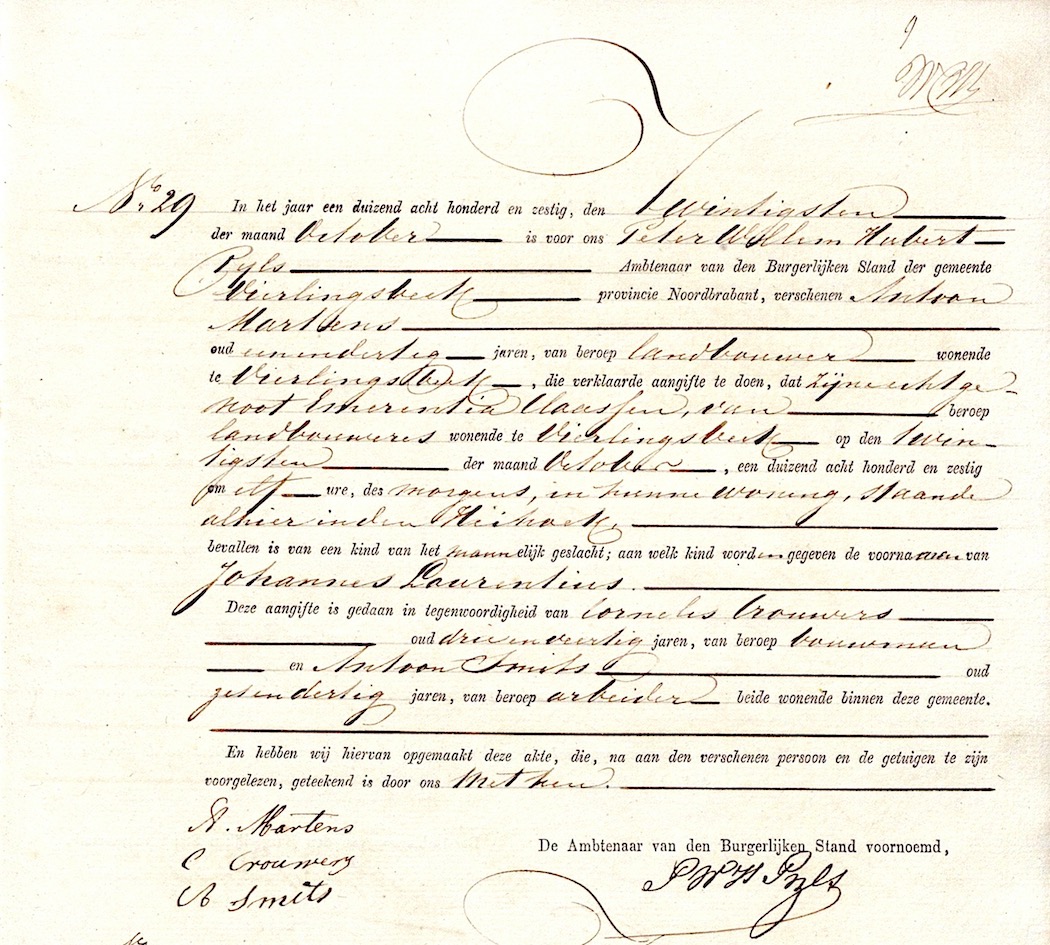 No 29 In het jaar een duizend acht honderd en zestig, den twintigsten
der maand October is voor ons Peter Willem Hubert
Pyls Ambtenaar van den Burgerlijken Stand der gemeente
Vierlingsbeek provincie Noordbrabant, verschenen Antoon
Martens
oud eenendertig jaren, van beroep landbouwer wonende
te Vierlingsbeek, die verklaarde aangifte te doen, dat zijne echtge-
noot Emerentia Claassen, van beroep
landbouweres wonende te Vierlingsbeek op den twin-
tigsten der maand October, een duizend acht honderd en zestig
om elf ure, des morgens, in hunne woning, staande
alhier in den
bevallen is van een kind van het mannelijk geslacht; aan welk kind worden gegeven de voornaamen van
Johannes Laurentius.
Deze aangifte is gedaan in tegenwoordigheid van Cornelis Crouwers
oud drieenveertig jaren, van beroep bouwman
en Antoon Smits oud
zesendertig jaren, van beroep arbeider beide wonende binnen deze gemeente.
En hebben wij hiervan opgemaakt deze akte, die, na aan den verschenen persoon en de getuigen te zijn
voorgelezen, geteekend is door ons met hen.
A. Martens
C Crouwers
A Smits
De Ambtenaar van den Burgerlijken Stand voornoemd,
P W H Pyls